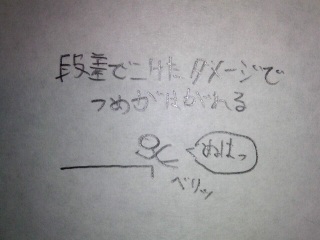 段差でこけたダメージで
つめがはがれる
ぬはっ
ベリッ